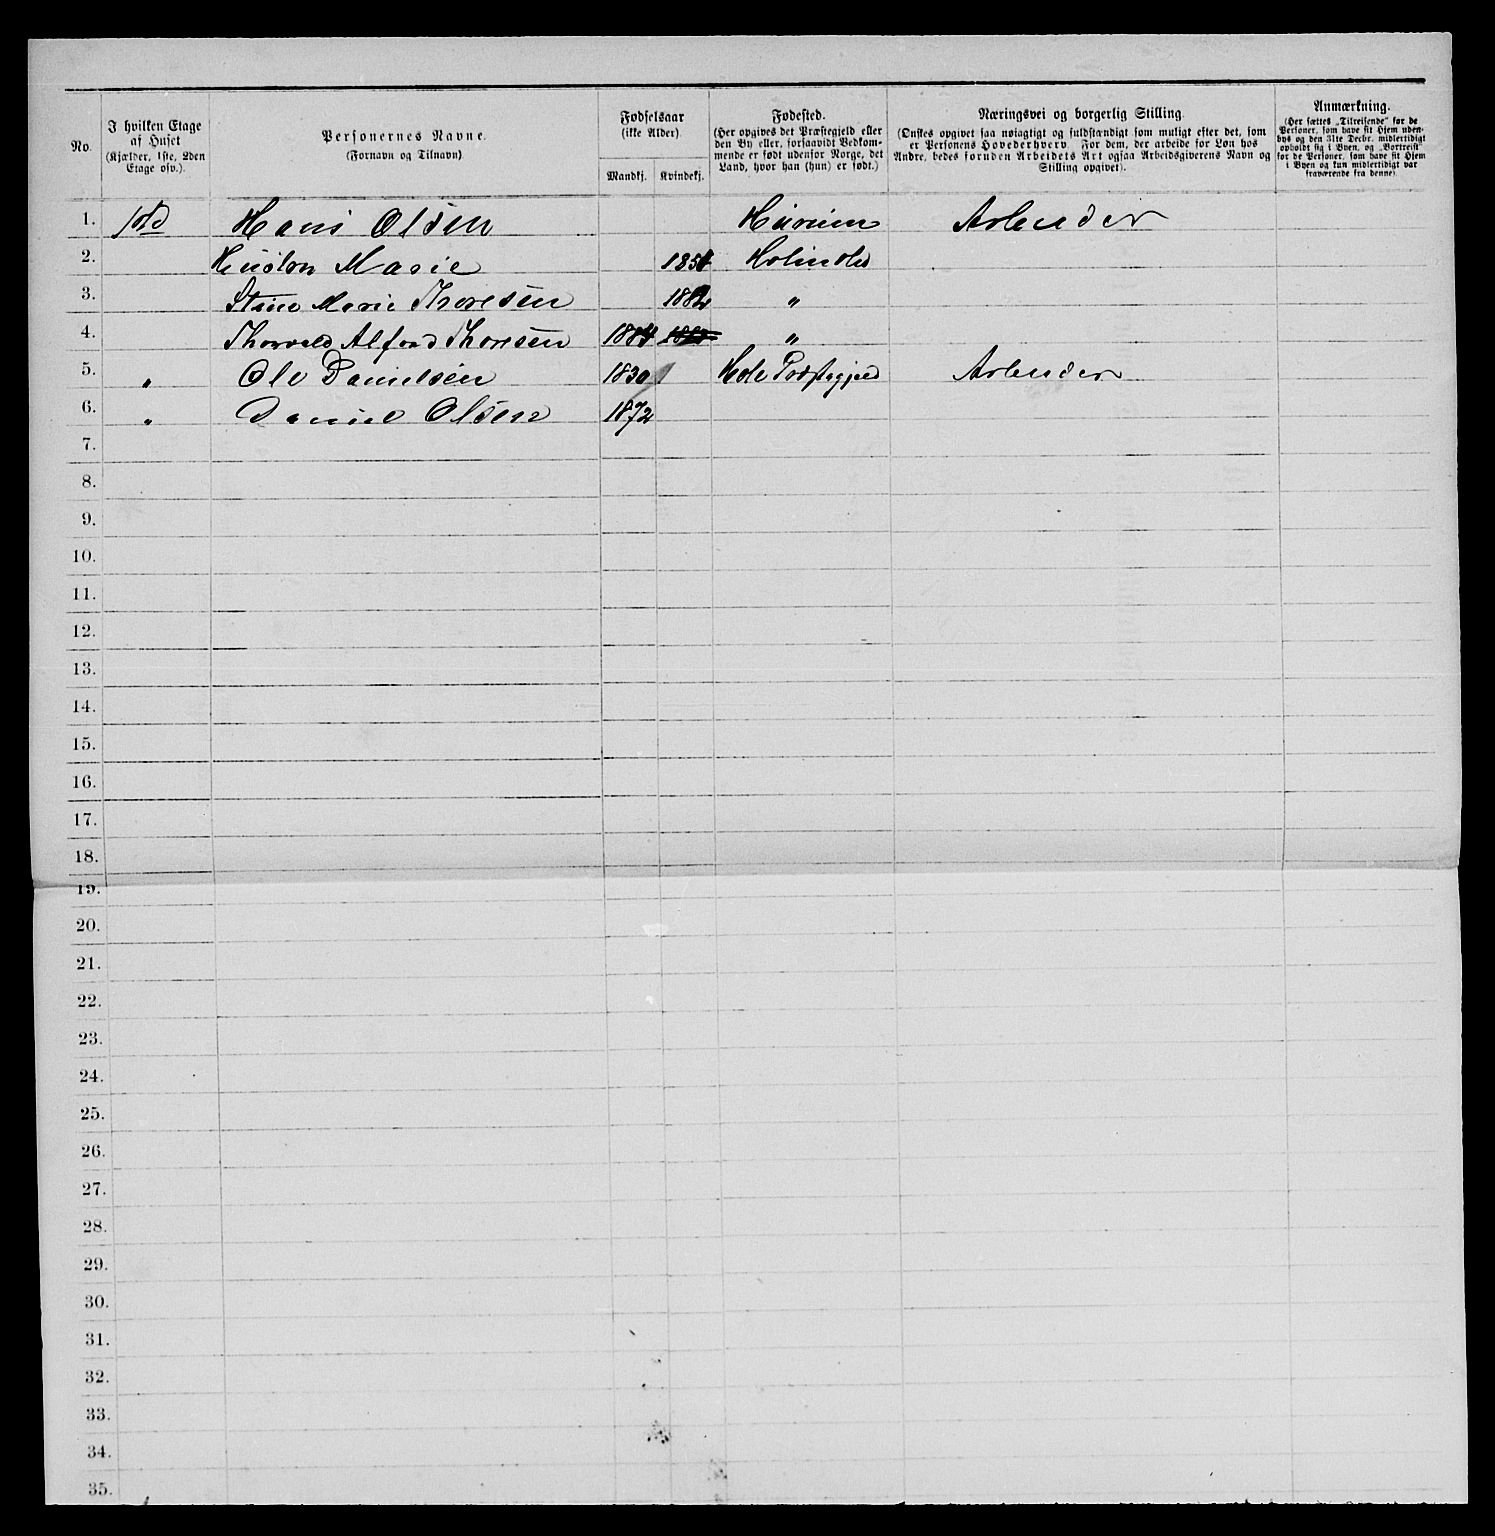 No.
I hvilken Etage af Huset (Kjælder, 1ste, 2den Etage osv.).
Personernes Navne. (Fornavn og Tilnavn)
Fødselsaar (ikke Alder). Mandkj. Kvindekj.
Fødested. (Her opgives det Præstegjeld eller den By eller, forsaavidt Vedkommende er født udenfor Norge, det Land, hvor han (hun) er født.)
Næringsvei og borgerlig Stilling. (Ønskes opgivet saa nøiagtigt og fuldstændigt som muligt efter det, som er Personens Hovederhverv. For dem, der arbeide for Løn hos Andre, bedes foruden Arbeidets Art ogsaa Arbeidsgiverens Navn og Stilling opgivet).
Anmærkning. (Her sættes „Tilreisende" for de Personer, som have sit Hjem udenbys og den 31te Decbr. midlertidigt opholdt sig i Byen, og „Bortreist" for de Personer, som have sit Hjem i Byen og kun midlertidigt var fraværende fra denne).
1. Hans Olsen Hurum Arbeider
2. Hustru Marie Holmsbo
3. Marie Thoresen 1882 "
4. Thorvald Alfred Thoresen 1884 "
5. " Ole Danielsen 1830 Hole Præstegjeld Arbeider
6. " Daniel Olsen 1872
7.
8.
9.
10.
11.
12.
13.
14.
15.
16.
17.
18.
19.
20.
21.
22.
23.
24.
25.
26.
27.
28.
29.
30.
31.
32.
33.
34.
35.